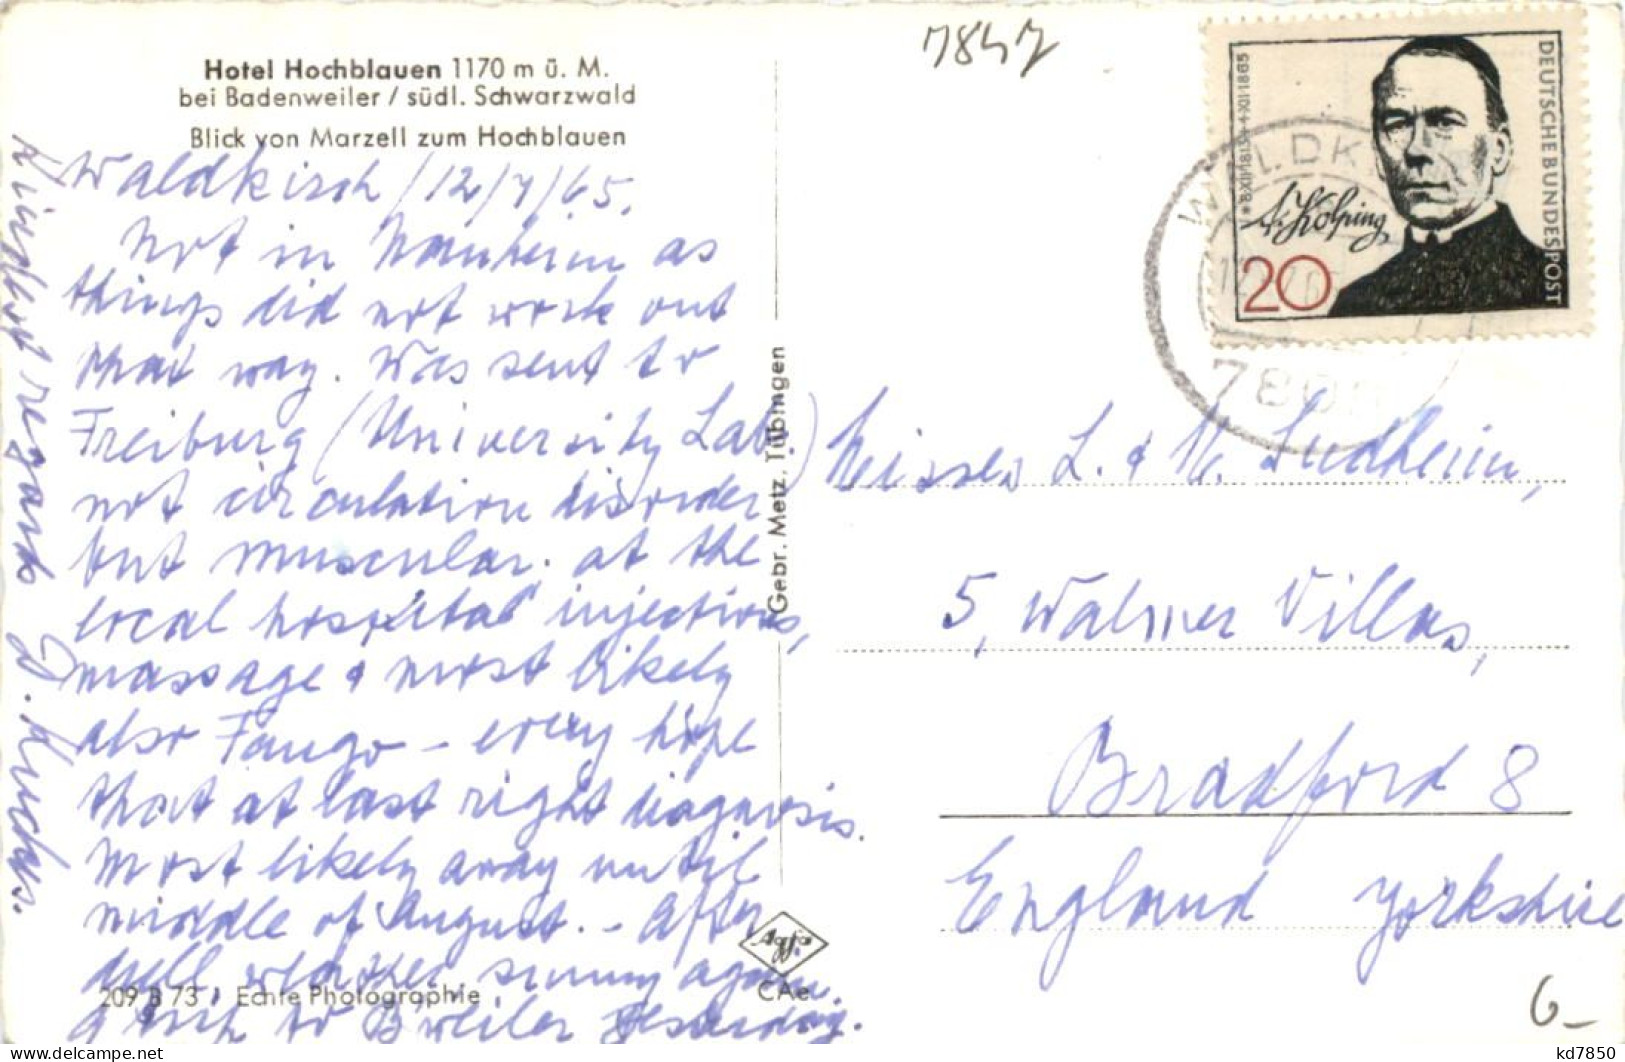 Hotel Hochblauen 1170 m ü. M.
bei Badenweiler / südl. Schwarzwald
Blick von Marzell zum Hochblauen
Waldkirch / 12/7/65.
Not in Mannheim as
things did not work out
that way. Was sent to
Freiburg (University Lab.)
not circulation disorder
but muscular. at the
local hospital injections,
massage & most likely
also Fango – every hope
that at last right diagnosis.
Most likely away until
middle of August. – After
dull weather sunny again.
to B'weiler yesterday.
Kindest regards
209 B 73 Echte Photographie
Gebr. Metz, Tübingen
Agfa
CAe
7847
DEUTSCHE BUNDESPOST
*8·XII·1813-+4·XII·1865
A. Kolping
20
WALDK
780
Misses L. & M. Sudheim,
5, Walmer Villas,
Bradford 8
England Yorkshire
6.–
kd7850